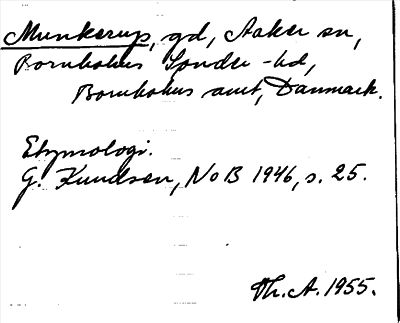 Munkerup, gd, Aaker sn,
Bornholms Sønder-hd,
Bornholms amt, Danmark.
Etymologi.
G. Knudsen, NoB 1946, s. 25.
Th. A. 1955.